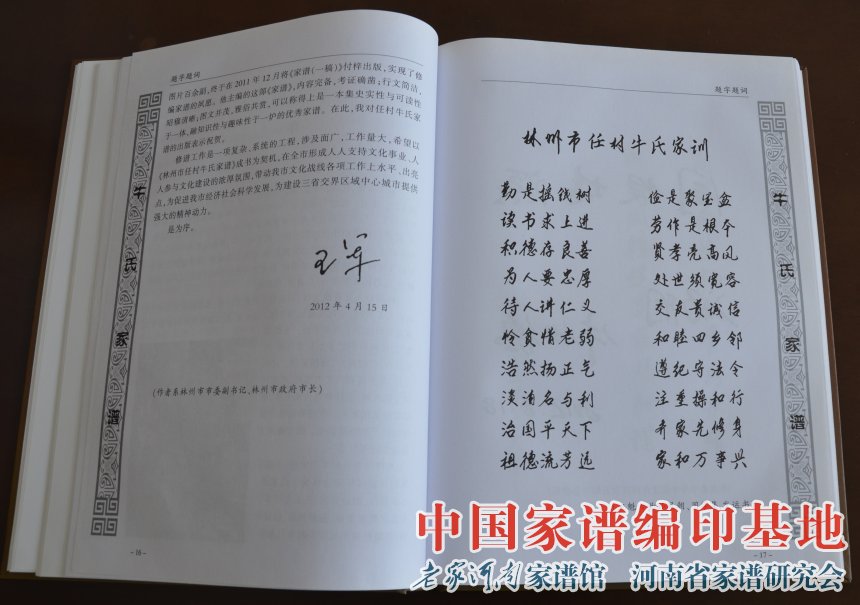 题字题词
图片百余副,终于在2011年12月将《家谱(一稿)》付梓出版,实现了修
编家谱的夙愿。他主编的这部《家谱》,内容完备,考证确凿;行文简洁,
昭穆清晰;图文并茂,雅俗共赏,可以称得上是一本集史实性与可读性
于一体,融知识性与趣味性于一炉的优秀家谱。在此,我对任村牛氏家
谱的出版表示祝贺。
修谱工作是一项复杂、系统的工程,涉及面广,工作量大,希望以
《林州市任村牛氏家谱》成书为契机,在全市形成人人支持文化事业、人
人参与文化建设的浓厚氛围,带动我市文化战线各项工作上水平、出亮
点,为促进我市经济社会科学发展,为建设三省交界区域中心城市提供
强大的精神动力。
是为序。
王军
2012年4月15日
(作者系林州市市委副书记、林州市政府市长)
牛氏家谱
-16-
题字题词
林州市任村牛氏家训
勤是摇钱树 俭是聚宝盆
读书求上进 劳作是根本
积德存良善 贤孝亮高风
为人要忠厚 处世须宽容
待人讲仁义 交友贵诚信
怜贫惜老弱 和睦四乡邻
浩然扬正气 遵纪守法令
淡泊名与利 注重操和行
治国平天下 齐家先修身
祖德流芳远 家和万事兴
牛氏家谱
-17-
中国家谱编印基地
老家河南家谱馆 河南省家谱研究会